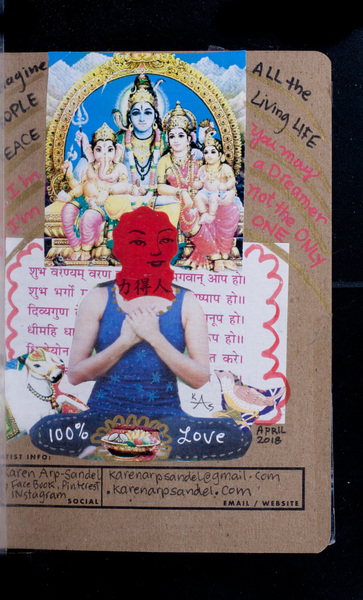 agine
OPLE
EACE
I'm
I'm
ALL the
Living LIFE
You may
a Dreamer
Not the
ONE ONLY
शुभ वरणयम् वरण गवान् आप हो।
शुभ भर्गो ष्पाप हो॥
दिव्यगुण नूप हो।
धीमहि धा हो॥
धियोयोन त करे।
力得人
KAS
100% Love
APRIL
2018
TIST INFO:
Karen Arp-Sandel
FaceBook, Pinterest
INstagram SOCIAL
karenarpsandel@gmail.com
.karenarpsandel.com
EMAIL / WEBSITE